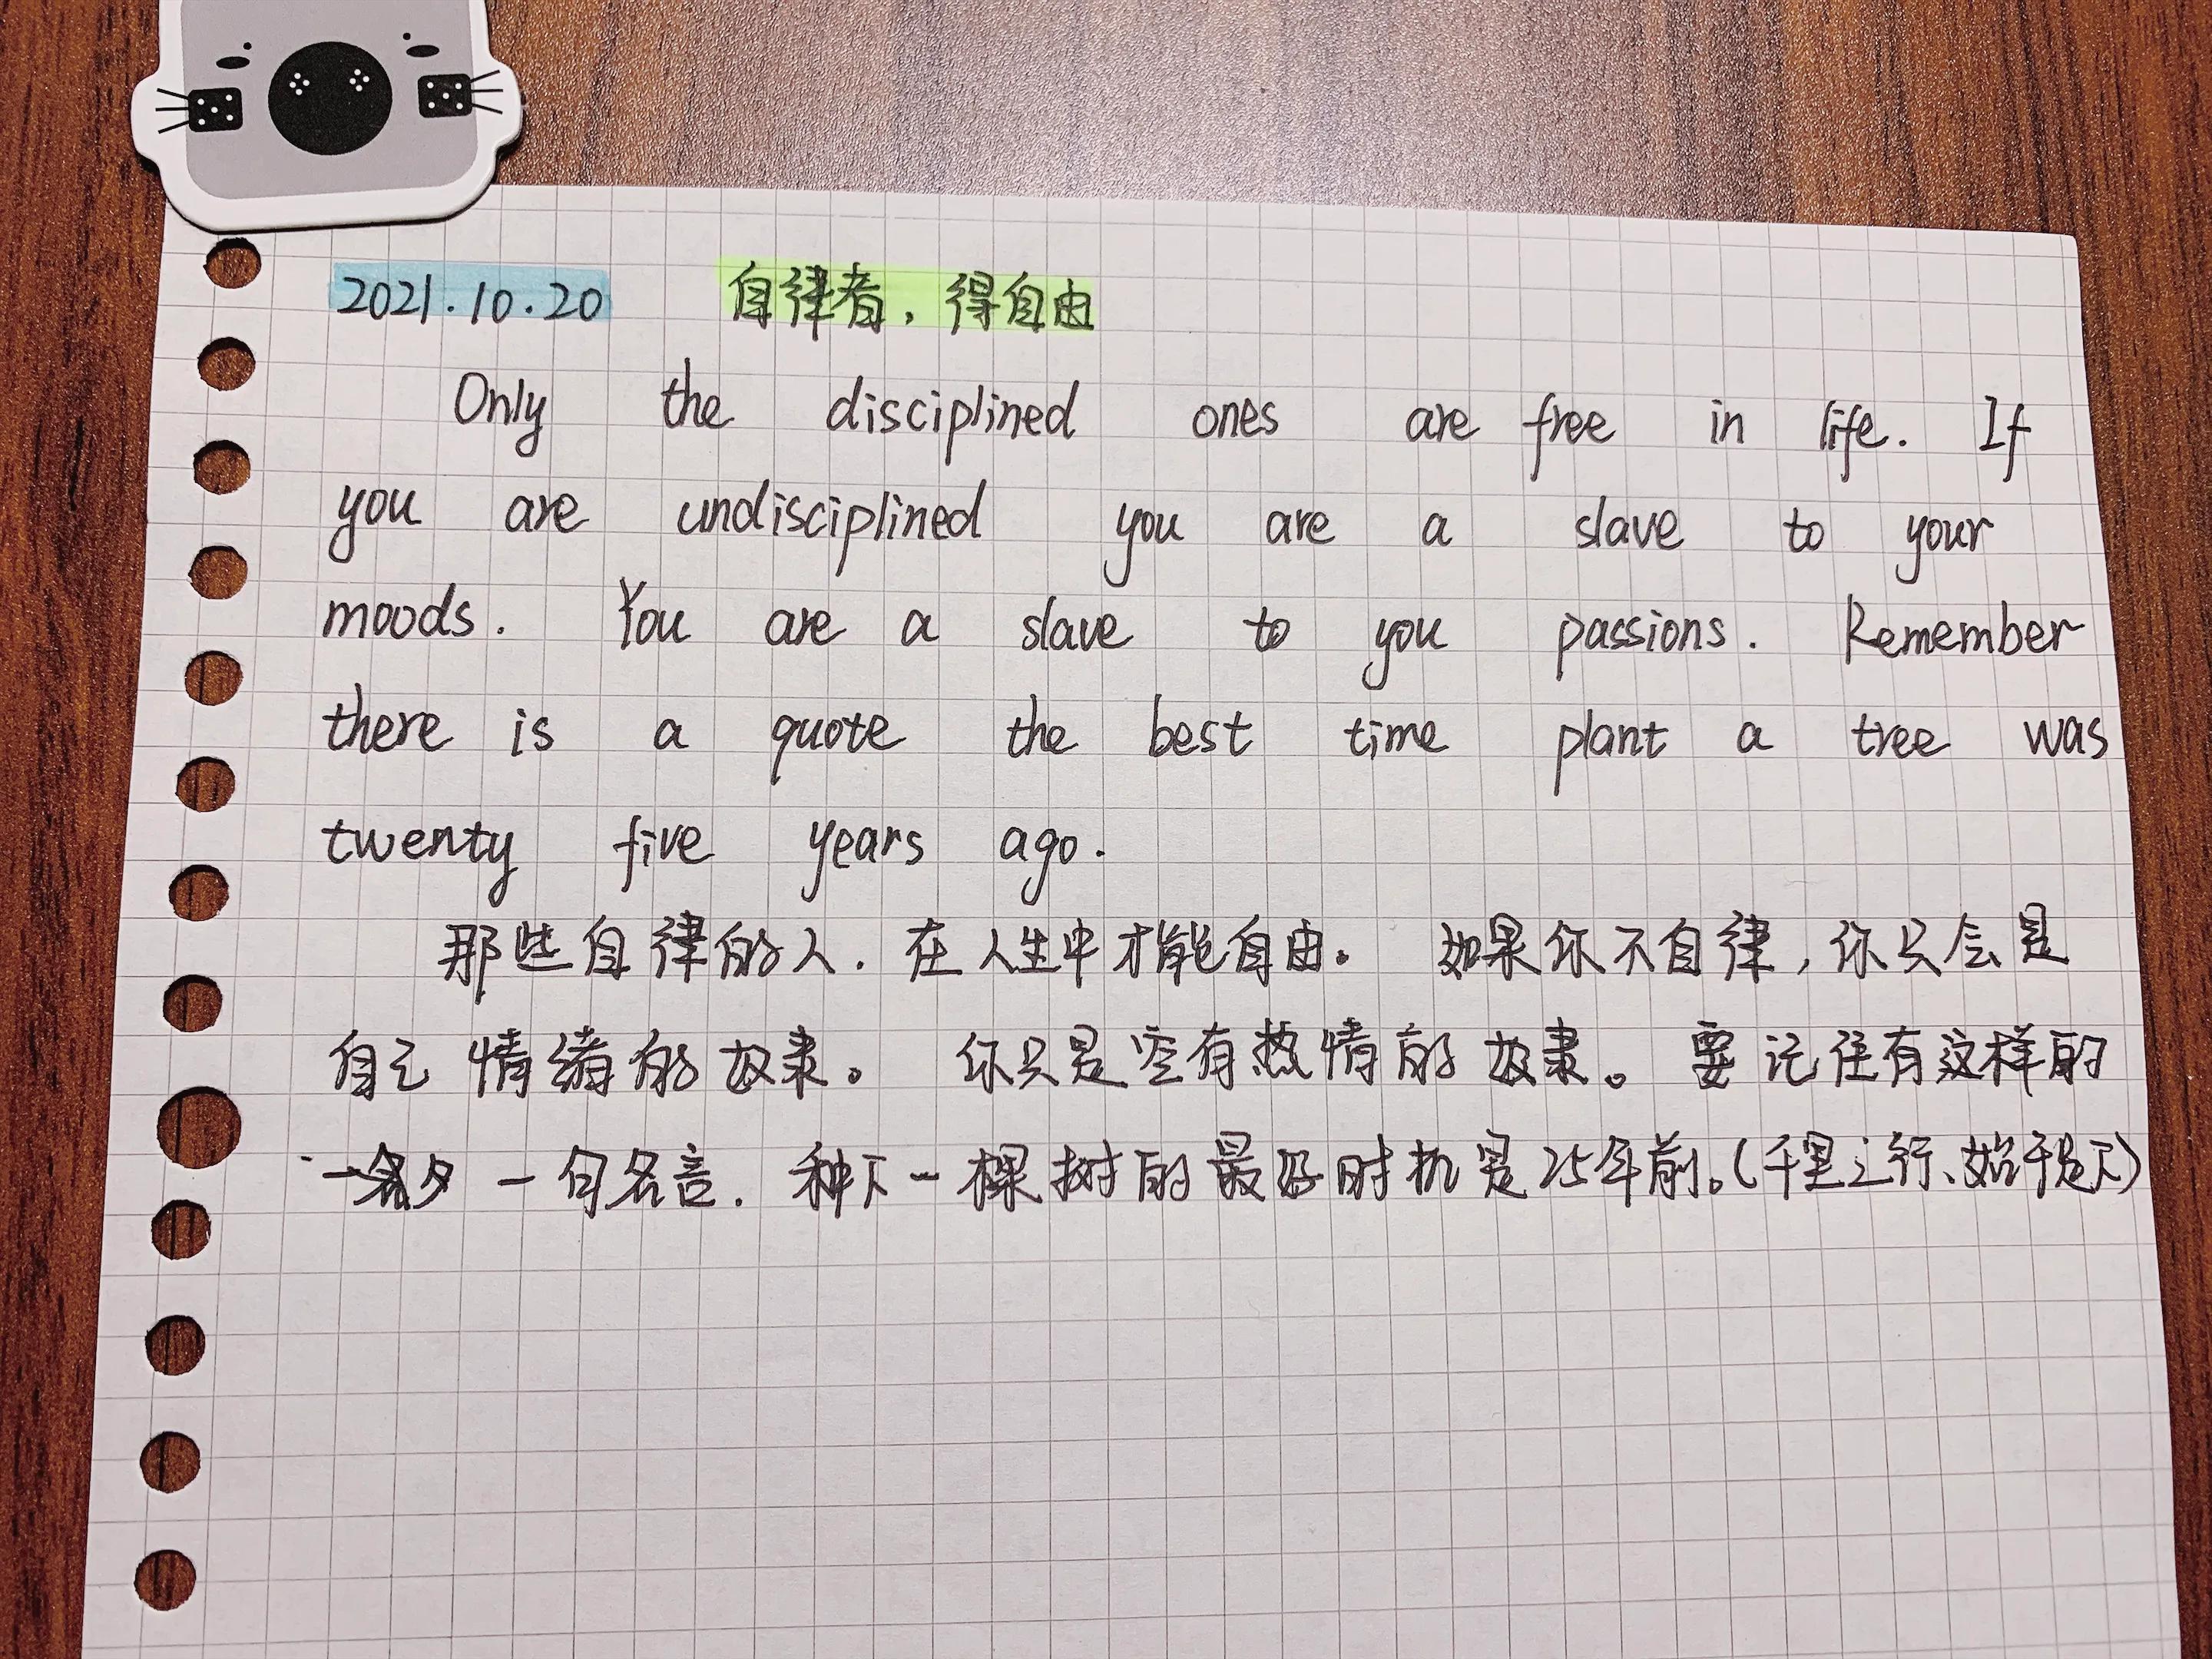 2021.10.20 自律者，得自由
Only the disciplined ones are free in life. If
you are undisciplined you are a slave to your
moods. You are a slave to you passions. Remember
there is a quote the best time plant a tree was
twenty five years ago.
那些自律的人，在人生中才能自由。 如果你不自律，你只会是
自己情绪的奴隶。 你只是空有热情的奴隶。 要记住有这样的
一句名言，种下一棵树的最好时机是25年前。（千里之行、始于足下）